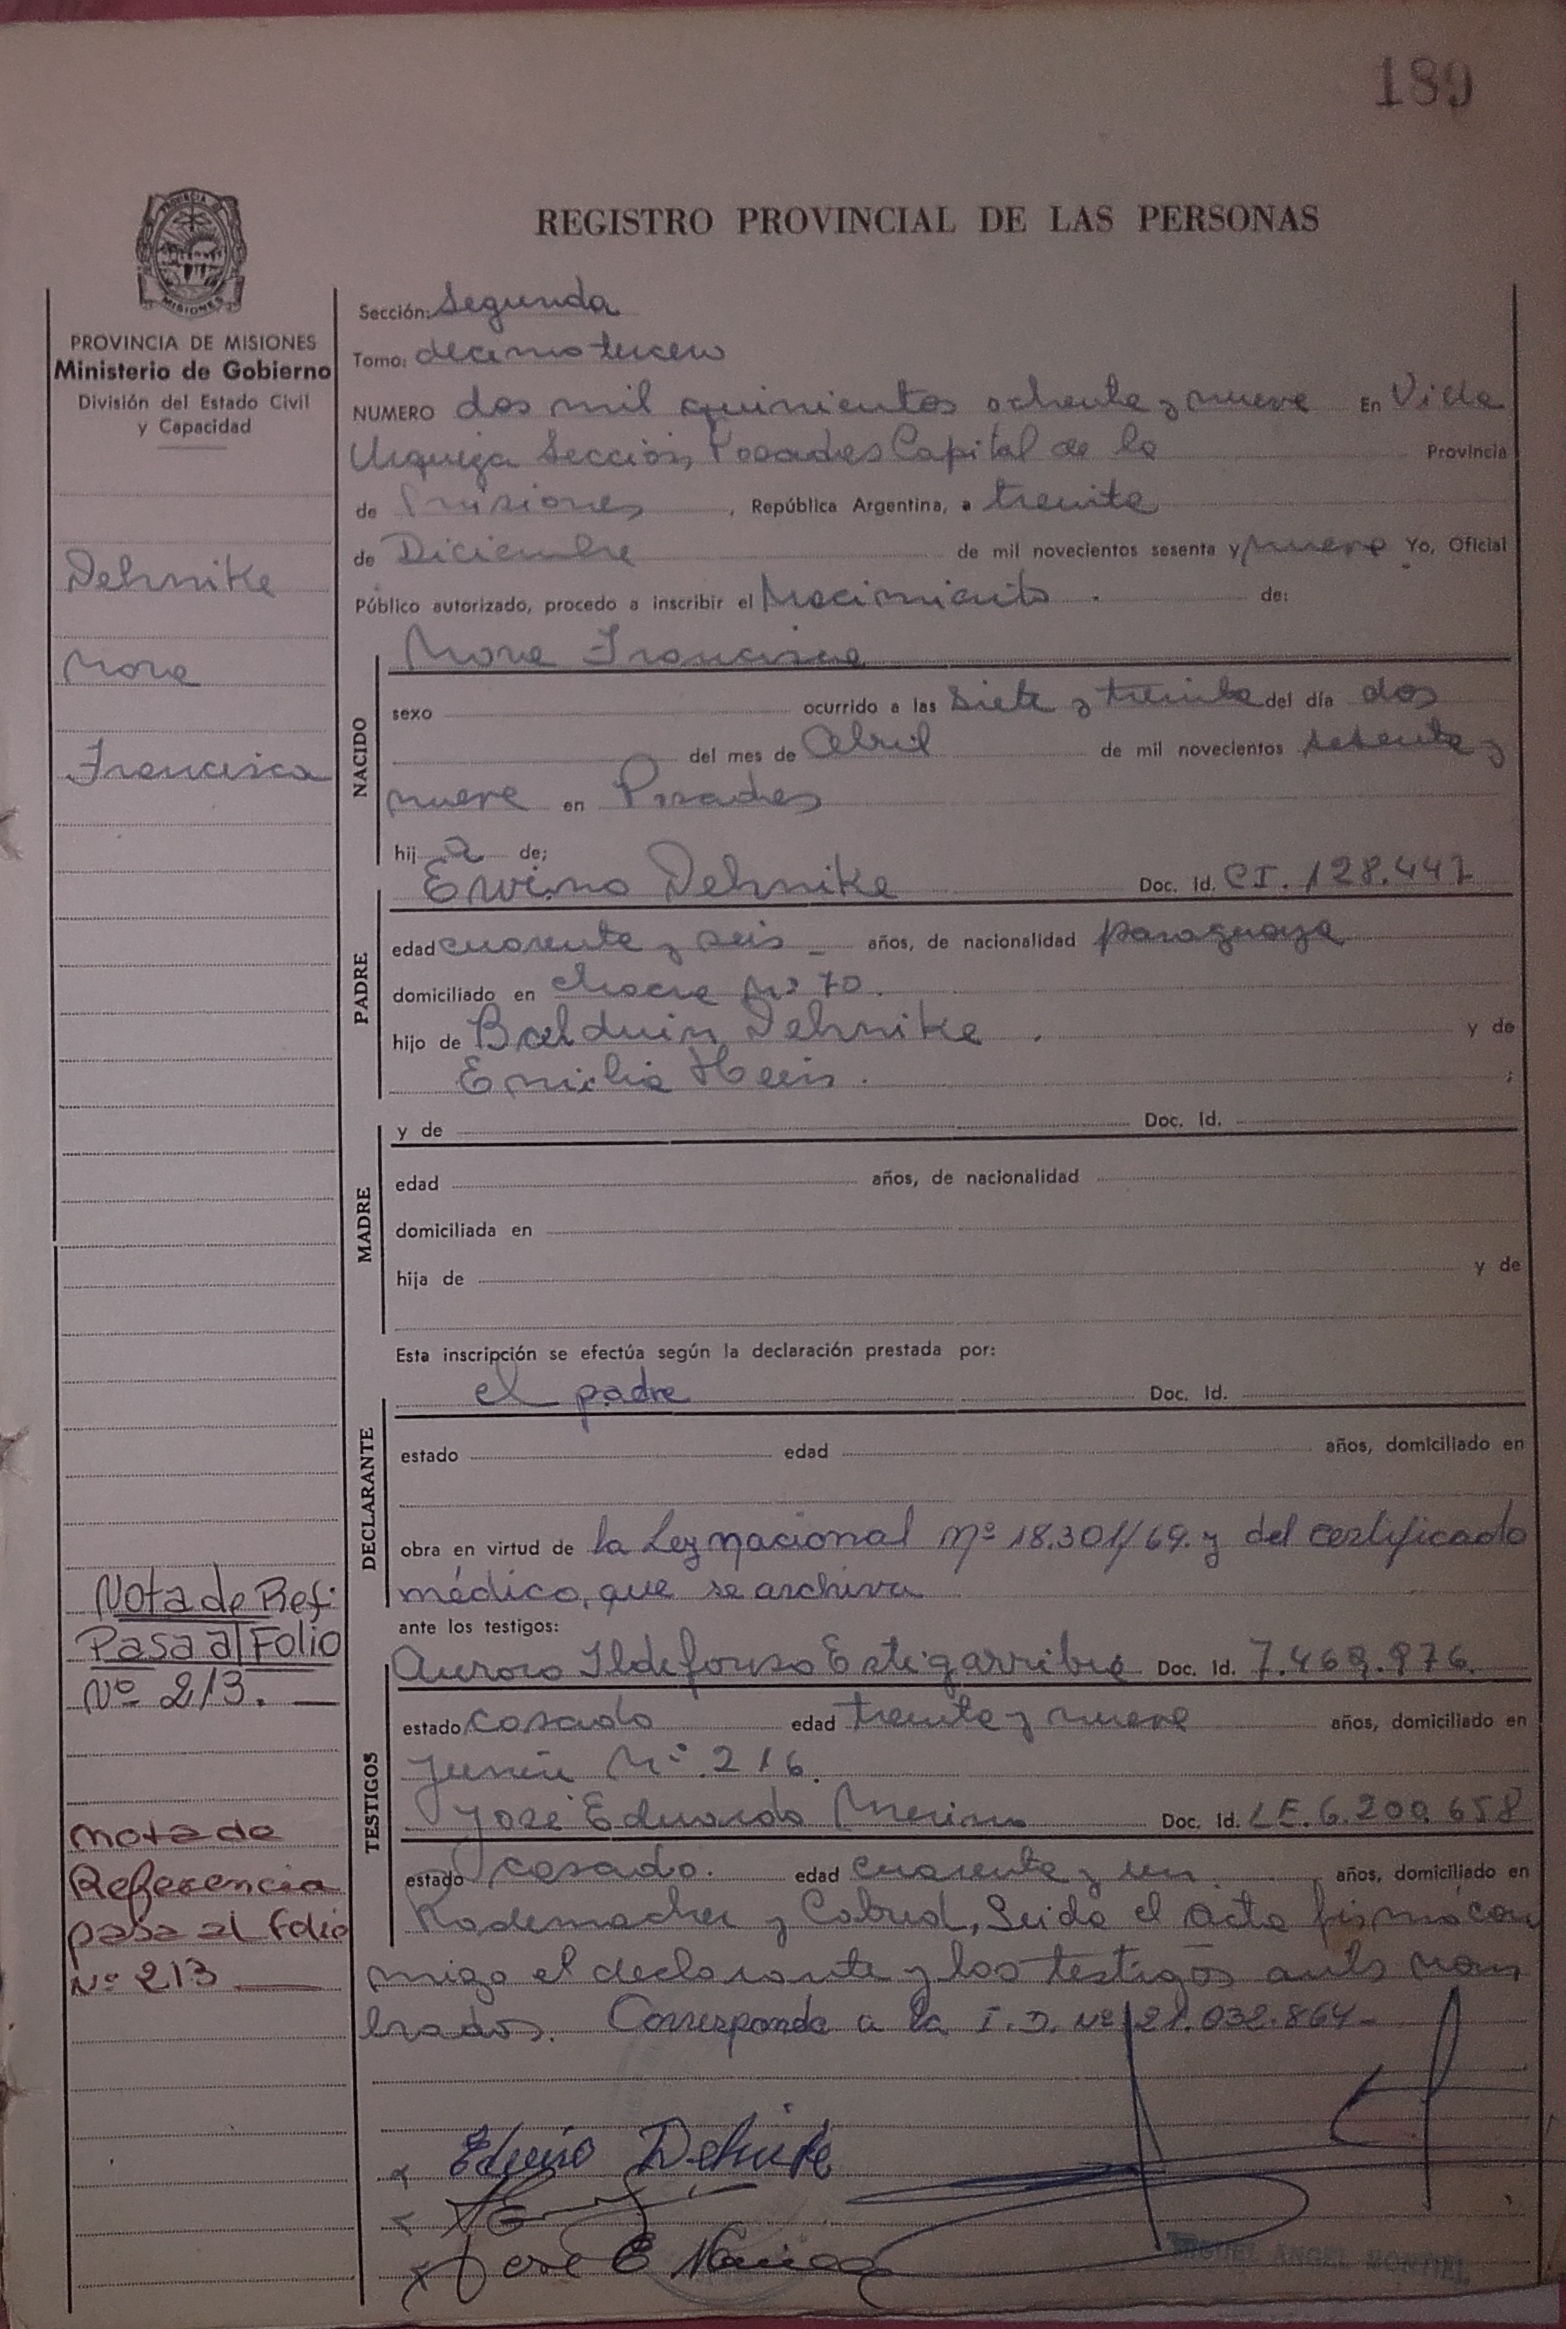 189
PROVINCIA DE MISIONES
REGISTRO PROVINCIAL DE LAS PERSONAS
PROVINCIA DE MISIONES
Ministerio de Gobierno
División del Estado Civil
y Capacidad
Dehnike
Nora
Francisca
Nota de Ref:
Pasa al Folio
Nº 213.
nota de
Referencia
pasa al folio
Nº 213
Sección: Segunda
Tomo: decimo tercero
NUMERO dos mil quinientos ochenta y nueve En Villa
Urquiza Sección, Posadas Capital de la Provincia
de Misiones, República Argentina, a treinta
de Diciembre de mil novecientos sesenta y nueve Yo, Oficial
Público autorizado, procedo a inscribir el Nacimiento. de:
NACIDO
Nora Francisca
sexo ocurrido a las siete y treinta del día dos
del mes de Abril de mil novecientos sesenta y
nueve en Posadas
hij a de;
PADRE
Erwino Dehnike Doc. Id. CI. 128.447
edad cuarenta y seis años, de nacionalidad paraguaya
domiciliado en chacra Nº 70.
hijo de Balduin Dehnike. y de
Emilia ;
MADRE
y de Doc. Id.
edad años, de nacionalidad
domiciliada en
hija de y de
Esta inscripción se efectúa según la declaración prestada por:
DECLARANTE
el padre Doc. Id.
estado edad años, domiciliado en
obra en virtud de la Ley nacional nº 18.301/69. y del certificado
médico, que se archiva
ante los testigos:
TESTIGOS
Ildefonso Estigarribia Doc. Id. 7.469.976.
estado casado edad treinta y nueve años, domiciliado en
Junín Nº. 216.
José Eduardo Merino Doc. Id. LE. 6.200.658
estado casado. edad cuarenta y un años, domiciliado en
Rademacher y Cabred, Leida el acta firmó con
migo el declarante y los testigos ants nom
brados. Corresponde a la I.D. Nº 21.032.864-
Edwino Dehnike
José E
MIGUEL ANGEL